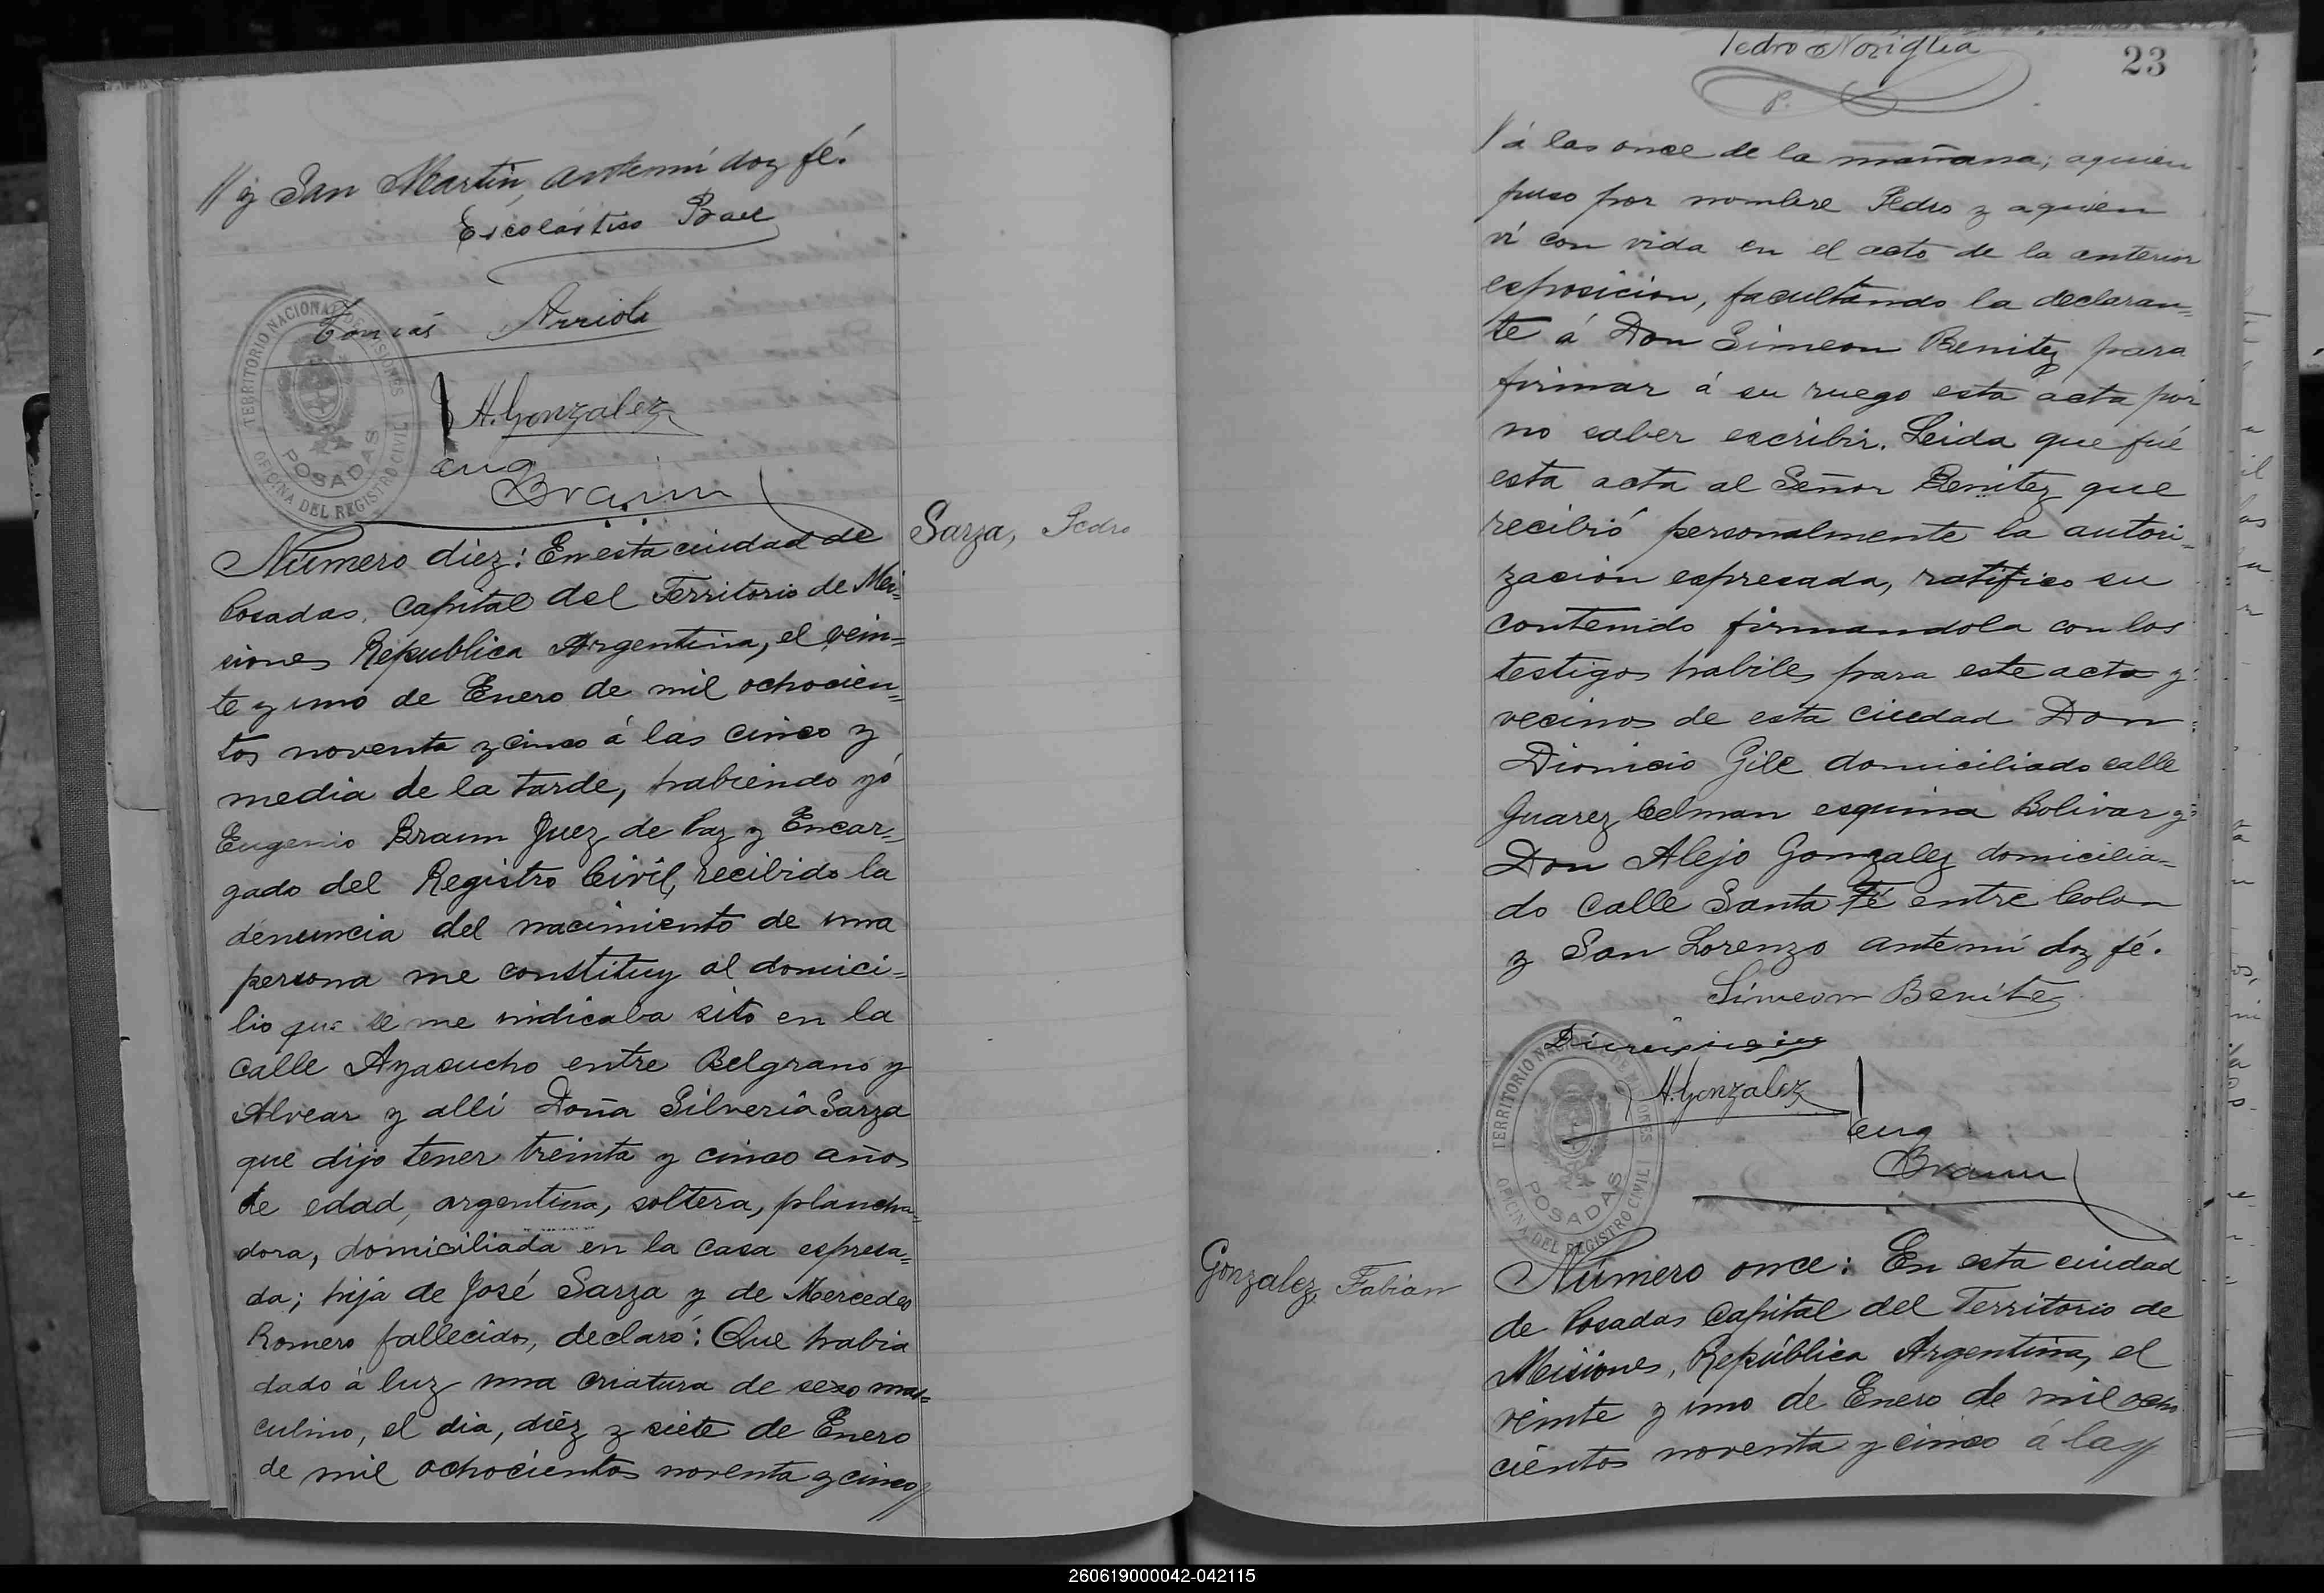 // y San Martin, ante mí doy fé.
Escolástico Baez
Tomás Arriola
A. Gonzalez
Eug
Braun
TERRITORIO NACIONAL DE MISIONES
POSADAS
OFICINA DEL REGISTRO CIVIL
Sarza, Pedro
Número diez: En esta ciudad de
Posadas, Capital del Territorio de Mi=
siones Republica Argentina, el vein=
te y uno de Enero de mil ochocien=
tos noventa y cinco á las cinco y
media de la tarde, habiendo yó
Eugenio Braun Juez de Paz y Encar=
gado del Registro Civil, recibido la
denuncia del nacimiento de una
persona me constituy al domici=
lio que se me indicaba sito en la
calle Ayacucho entre Belgrano y
Alvear y allí Doña Silveria Sarza
que dijo tener treinta y cinco años
de edad, argentina, soltera, plancha=
dora, domiciliada en la casa espresa=
da; hija de José Sarza y de Mercedes
Romero fallecidos, declaró: Que habia
dado á luz una criatura de sexo mas=
culino, el dia, diéz y siete de Enero
de mil ochocientos noventa y cinco//
Pedro Noziglia
23
// á las once de la mañana; aquien
puso por nombre Pedro y aquien
ví con vida en el acto de la anterior
esposicion, facultando la declaran=
te á Don Simeon Benitez para
firmar á su ruego esta acta por
no saber escribir. Leida que fué
esta acta al Señor Benitez que
recibió personalmente la autori=
zacion espresada, ratifico su
contenido firmandola con los
testigos habiles para este acto y
vecinos de esta ciudad Don
Dionicio Gile domiciliado calle
Juarez Celman esquina Bolivar y
Don Alejo Gonzalez domicilia=
do calle Santa Fé entre Colon
y San Lorenzo ante mí doy fé.
Simeon Benitez
A. Gonzalez
Eug
Braun
TERRITORIO NACIONAL DE MISIONES
POSADAS
OFICINA DEL REGISTRO CIVIL
Gonzalez, Fabian
Número once: En esta ciudad
de Posadas Capital del Territorio de
Misiones, República Argentina, el
veinte y uno de Enero de mil ocho
cientos noventa y cinco á las//
260619000042-042115